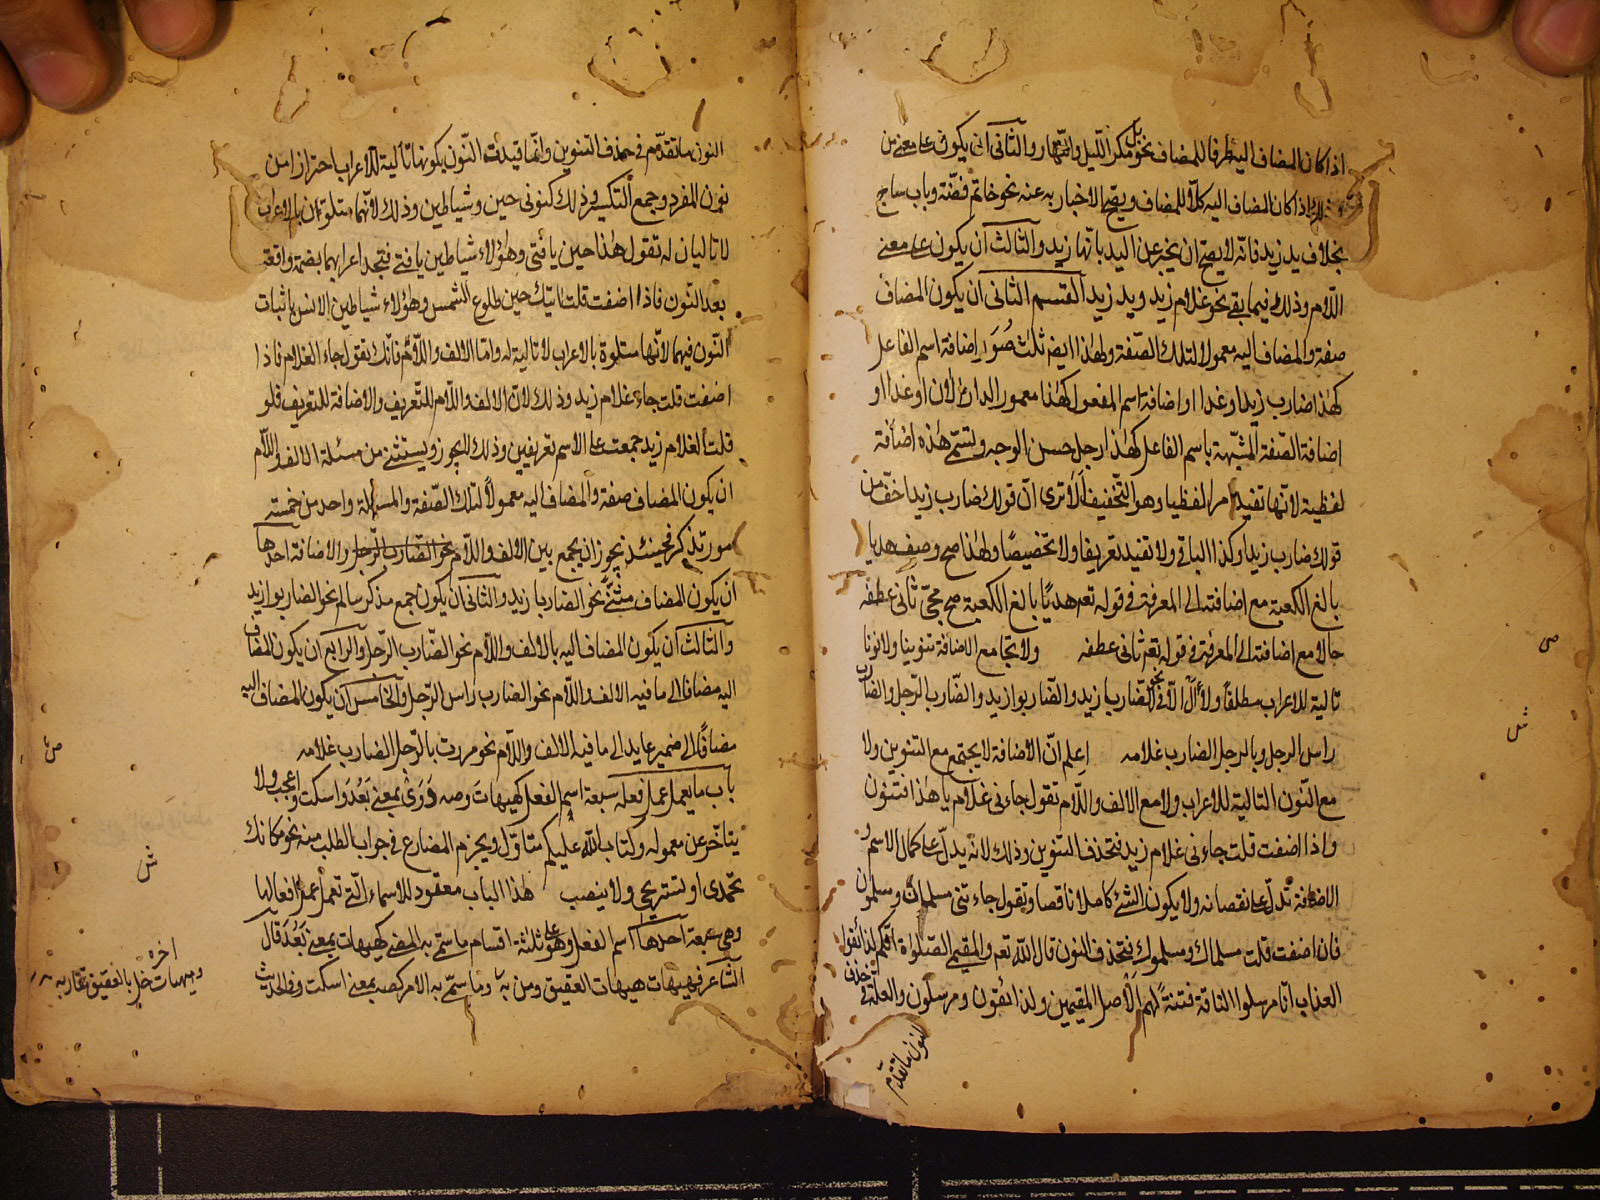 اذا كان المضاف اليه ظرفا للمضاف نحو بل مكر الليل والنهار والثاني ان يكون على معنى من
وذلك اذا كان المضاف اليه كلا للمضاف ويصح الاخبار به عنه نحو خاتم فضة وباب ساج
بخلاف يد زيد فانه لا يصح ان يخبر عن اليد بانها زيد والثالث ان يكون على معنى
اللام وذلك فيما بقي نحو غلام زيد ويد زيد القسم الثاني ان يكون المضاف
صفة والمضاف اليه معمولا لتلك الصفة ولهذا ايضا ثلث صُوَر اضافة اسم الفاعل
كهذا ضارب زيد او غدا او اضافة اسم المفعول كهذا معمور الدار الان او غدا او
اضافة الصفة المشبهة باسم الفاعل كهذا رجل حسن الوجه وتسمى هذه اضافة
لفظية لانها تفيد امرا لفظيا وهو التخفيف ألا ترى انّ قولك ضارب زيد اخف من
قولك ضارب زيدا وكذا الباقي ولا تفيد تعريفا ولا تخصيصًا ولهذا صح وصف هديا
ببالغ الكعبة مع اضافته الى المعرفة في قوله تعم هديًا بالغ الكعبة صح مجئ ثاني عطفه
حالا مع اضافته الى المعرفة في قوله تعم ثاني عطفه ولا تجامع الاضافة تنوينا ولا نونا
تالية للاعراب مطلقا ولا أل الا في نحو الضاربا زيد والضاربوا زيد والضارب الرجل والضارب
راس الرجل وبالرجل الضارب غلامه اعلم انّ الاضافة لا يجتمع مع التنوين ولا
مع النون التالية للاعراب ولا مع الالف واللام تقول جاءني غلام يا هذا فتنون
واذا اضفت قلت جاءني غلام زيد فتحذف التنوين وذلك لانه يدل على كمال الاسم و
الاضافة تدل على نقصانه ولا يكون الشئ كاملا ناقصا وتقول جاءني مسلمان ومسلمون
فان اضفت قلت مسلماك ومسلموك فتحذف النون قال الله تعم والمقيمي الصلوة انكم لذائقوا
العذاب انا مرسلوا الناقة فتنة لهم الاصل المقيمين ولذائقون ومرسلون والعلة في حذف
النون ما تقدّم
ص
ش
النون ما تقدّم في حذف التنوين وانما قيدت النون بكونها تالية للاعراب احترازا من
نون المفرد وجمع التكسير وذلك كنوني حين وشياطين وذلك لانهما متلوّان بالاعراب
لا تاليان له تقول هذا حين يا فتى وهؤلاء شياطين يا فتى فتجد اعرابهما بضمة واقعة
بعد النون فاذا اضفت قلت اتيك حين طلوع الشمس وهؤلاء شياطين الانس باثبات
النون فيهما لانها متلوة بالاعراب لا تالية له واما الالف واللام فانك تقول جاء الغلام فاذا
اضفت قلت جاء غلام زيد وذلك لانّ الالف واللام للتعريف والاضافة للتعريف فلو
قلت الغلام زيد جمعت على الاسم تعريفين وذلك لا يجوز ويستثنى من مسئلة الالف واللام
ان يكون المضاف صفة والمضاف اليه معمولا لتلك الصفة والمسئلة واحد من خمسة
امور تذكر فحينئذ يجوز ان يجمع بين الالف واللام نحو الضارب الرجل والاضافة احدها
ان يكون المضاف مثنى نحو الضاربا زيد والثاني ان يكون جمع مذكر سالم نحو الضاربوا زيد
والثالث ان يكون المضاف اليه بالالف واللام نحو الضارب الرجل والرابع ان يكون المضاف
اليه مضافا الى ما فيه الالف واللام نحو الضارب راس الرجل والخامس ان يكون المضاف اليه
مضافًا الى ضمير عايد الى ما فيه الالف واللام نحو مررت بالرجل الضارب غلامه
باب ما يعمل عمل فعله سبعة اسم الفعل كهيهات وصه ووي بمعنى بَعُدَ واسكت واعجب ولا
يتأخر عن معموله وكتاب الله عليكم متاوّل ويجزم المضارع في جواب الطلب منه نحو مكانك
تحمدي او تستريحي ولا ينصب هذا الباب معقود للاسماء التي تعمل عمل افعالها
وهي سبعة احدها اسم الفعل وهو على ثلثة اقسام ما سمي به الماضي كهيهات بمعنى بَعُدَ قال
الشاعر فهيهات هيهات العقيق ومن به وما سمي به الامر كصه بمعنى اسكت وفي الحديث
ص
ش
اخره
وهيهات خل بالعقيق